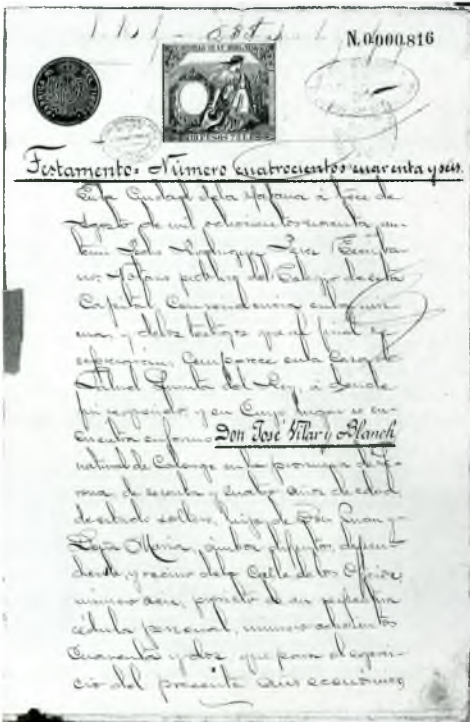 N.0.000.816
Testamento = Número cuatrocientos cuarenta y seis.
En la Ciudad de la Habana a trece de
Agosto de mil ochocientos noventa, an
te mi Pedro Rodriguez Perez Escriba
no, Notario publico del Colegio de esta
Capital Con residencia en la mis
ma, y de los testigos que al final se
espresarán, Comparece en la Casa de
Salud Quinta del Rey, á donde
fui requerido y en Cuyo lugar se en-
cuentra enfermo Don José Vilar y Blanch
natural de Calonge en la provincia de Ge
rona, de sesenta y cuatro años de edad
de estado soltero, hijo de Don Juan y
Doña Maria, ámbos difuntos, depen-
diente, y vecino de la Calle de los Oficios
número once, provisto de su respectiva
cédula personal, número ochocientos
Cuarenta y dos, que para el ejerci-
cio del presente año económico,